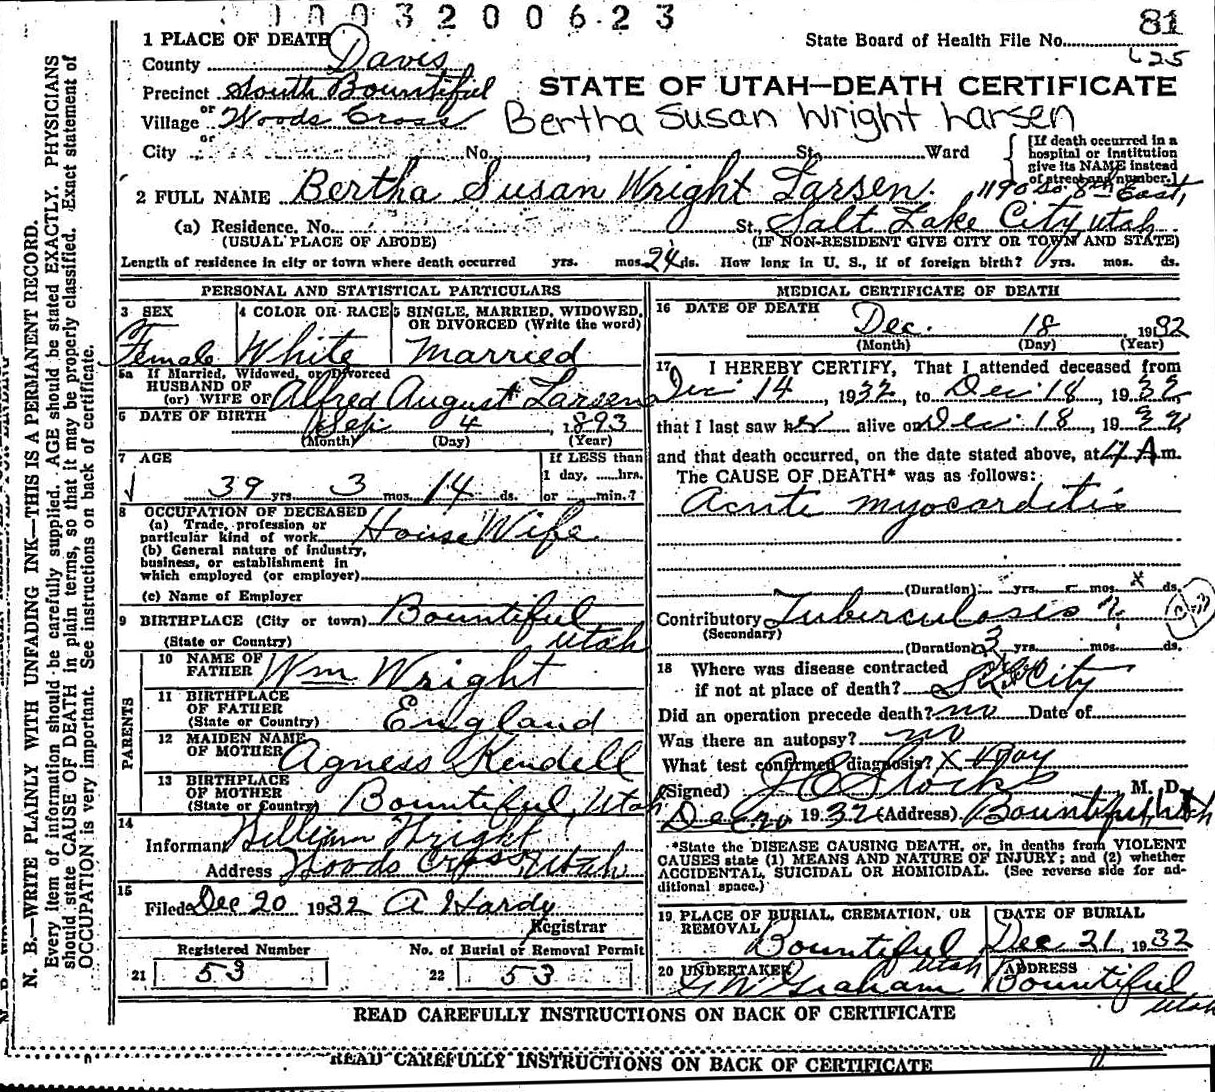 0003200623
81
State Board of Health File No.
625
1 PLACE OF DEATH
County Davis
Precinct South Bountiful
or
Village Woods Cross
or
City No. , St. Ward
STATE OF UTAH—DEATH CERTIFICATE
Bertha Susan Wright Larsen
[If death occurred in a
hospital or institution
give its NAME instead
of street and number.]
2 FULL NAME Bertha Susan Wright Larsen. 1190 So 8th East,
(a) Residence. No. St., Salt Lake City, Utah
(USUAL PLACE OF ABODE) (IF NON-RESIDENT GIVE CITY OR TOWN AND STATE)
Length of residence in city or town where death occurred yrs. mos. 24 ds. How long in U. S., if of foreign birth? yrs. mos. ds.
PERSONAL AND STATISTICAL PARTICULARS
3 SEX
Female
4 COLOR OR RACE
White
5 SINGLE, MARRIED, WIDOWED,
OR DIVORCED (Write the word)
Married
5a If Married, Widowed, or Divorced
HUSBAND OF
(or) WIFE OF Alfred August Larsen
6 DATE OF BIRTH Sep 4, 1893
(Month) (Day) (Year)
7 AGE
39 yrs. 3 mos. 14 ds.
If LESS than
1 day, ......hrs.
or ......min.?
8 OCCUPATION OF DECEASED
(a) Trade, profession or
particular kind of work House Wife
(b) General nature of industry,
business, or establishment in
which employed (or employer)
(c) Name of Employer
9 BIRTHPLACE (City or town) Bountiful
(State or Country) Utah
PARENTS
10 NAME OF
FATHER Wm Wright
11 BIRTHPLACE
OF FATHER
(State or Country) England
12 MAIDEN NAME
OF MOTHER Agness Kendell
13 BIRTHPLACE
OF MOTHER
(State or Country) Bountiful, Utah
14
Informant William Wright
Address Woods Cross, Utah
15
Filed Dec 20 1932 A Hardy
Registrar
Registered Number
21 53
No. of Burial or Removal Permit
22 53
MEDICAL CERTIFICATE OF DEATH
16 DATE OF DEATH
Dec. 18, 1932
(Month) (Day) (Year)
17 I HEREBY CERTIFY, That I attended deceased from
Dec 14, 1932, to Dec 18, 1932,
that I last saw her alive on Dec 18, 1932,
and that death occurred, on the date stated above, at 4 A m.
The CAUSE OF DEATH* was as follows:
Acute myocarditis
(Duration) yrs. mos. x ds.
Contributory Tuberculosis ?
(Secondary)
(Duration) 3 yrs. mos. ds.
18 Where was disease contracted
if not at place of death? S L City
Did an operation precede death? no Date of
Was there an autopsy? no
What test confirmed diagnosis? X Ray
(Signed) M. D.
Dec 20 1932 (Address) Bountiful, Utah
*State the DISEASE CAUSING DEATH, or, in deaths from VIOLENT
CAUSES state (1) MEANS AND NATURE OF INJURY; and (2) whether
ACCIDENTAL, SUICIDAL OR HOMICIDAL. (See reverse side for ad-
ditional space.)
19 PLACE OF BURIAL, CREMATION, OR
REMOVAL
Bountiful Utah
DATE OF BURIAL
Dec 21, 1932
20 UNDERTAKER
G W Graham
ADDRESS
Bountiful Utah
READ CAREFULLY INSTRUCTIONS ON BACK OF CERTIFICATE
READ CAREFULLY INSTRUCTIONS ON BACK OF CERTIFICATE
N. B.—WRITE PLAINLY WITH UNFADING INK—THIS IS A PERMANENT RECORD.
Every item of information should be carefully supplied. AGE should be stated EXACTLY. PHYSICIANS
should state CAUSE OF DEATH in plain terms, so that it may be properly classified. Exact statement of
OCCUPATION is very important. See instructions on back of certificate.